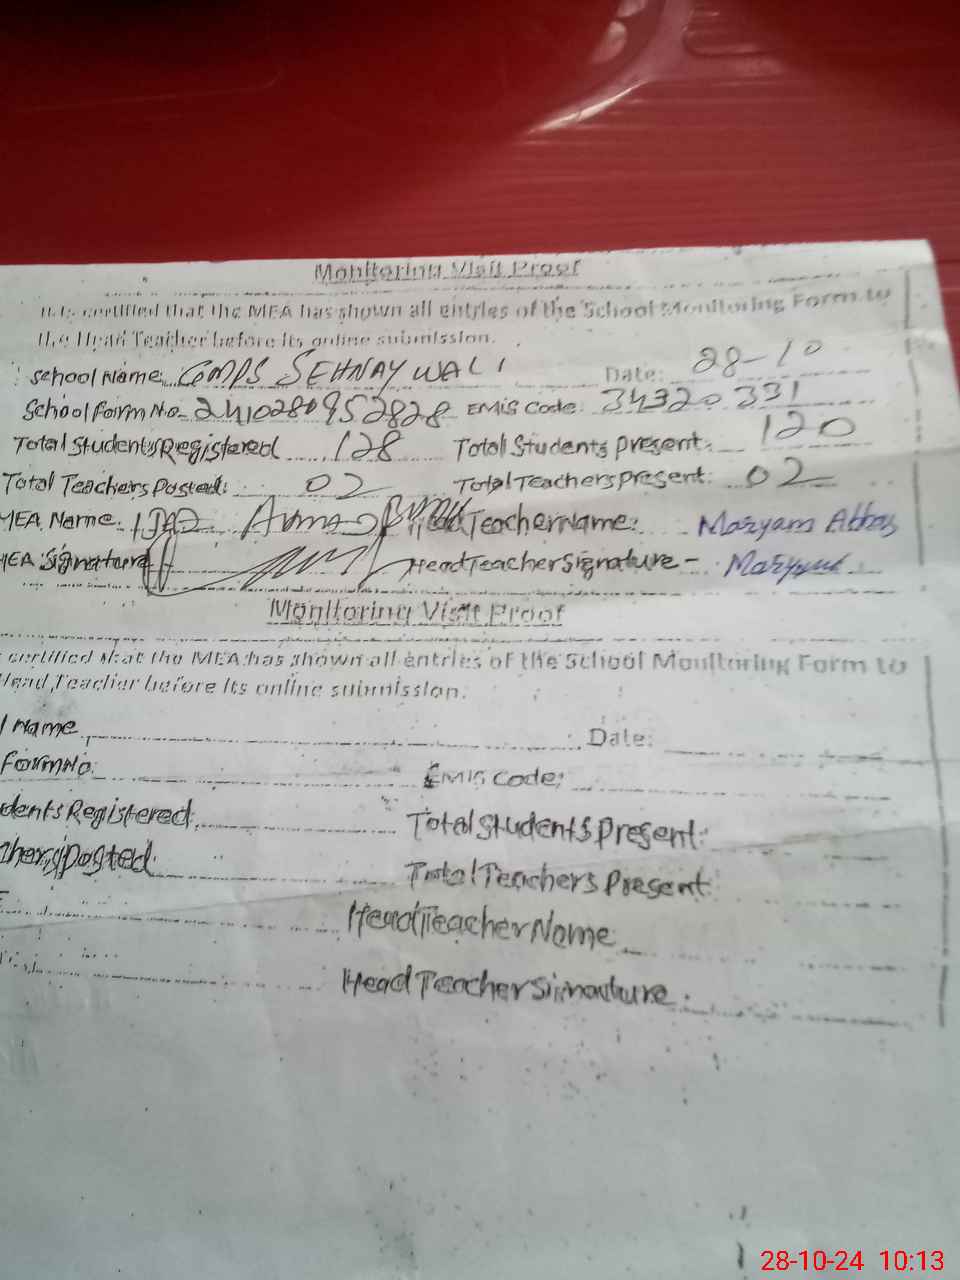 Monitoring Visit Proof
It is certified that the MEA has shown all entries of the School Monitoring Form to
the Head Teacher before its online submission.
School Name: GMPS SEHNAY WALI Date: 28-10
School Form No. 2410280952828 EMIS Code: 34320331
Total Students Registered 128 Total Students present: 120
Total Teachers Posted: 02 Total Teachers present: 02
MEA Name: IJAZ Ahmad Head Teacher Name: Maryam Abbas
MEA Signature Head Teacher Signature - Maryam
Monitoring Visit Proof
certified that the MEA has shown all entries of the School Monitoring Form to
Head Teacher before its online submission.
l Name Date:
Form No: EMIS Code:
dents Registered: Total Students Present:
chers posted: Total Teachers Present:
Head Teacher Name
Head Teacher Signature:
28-10-24 10:13